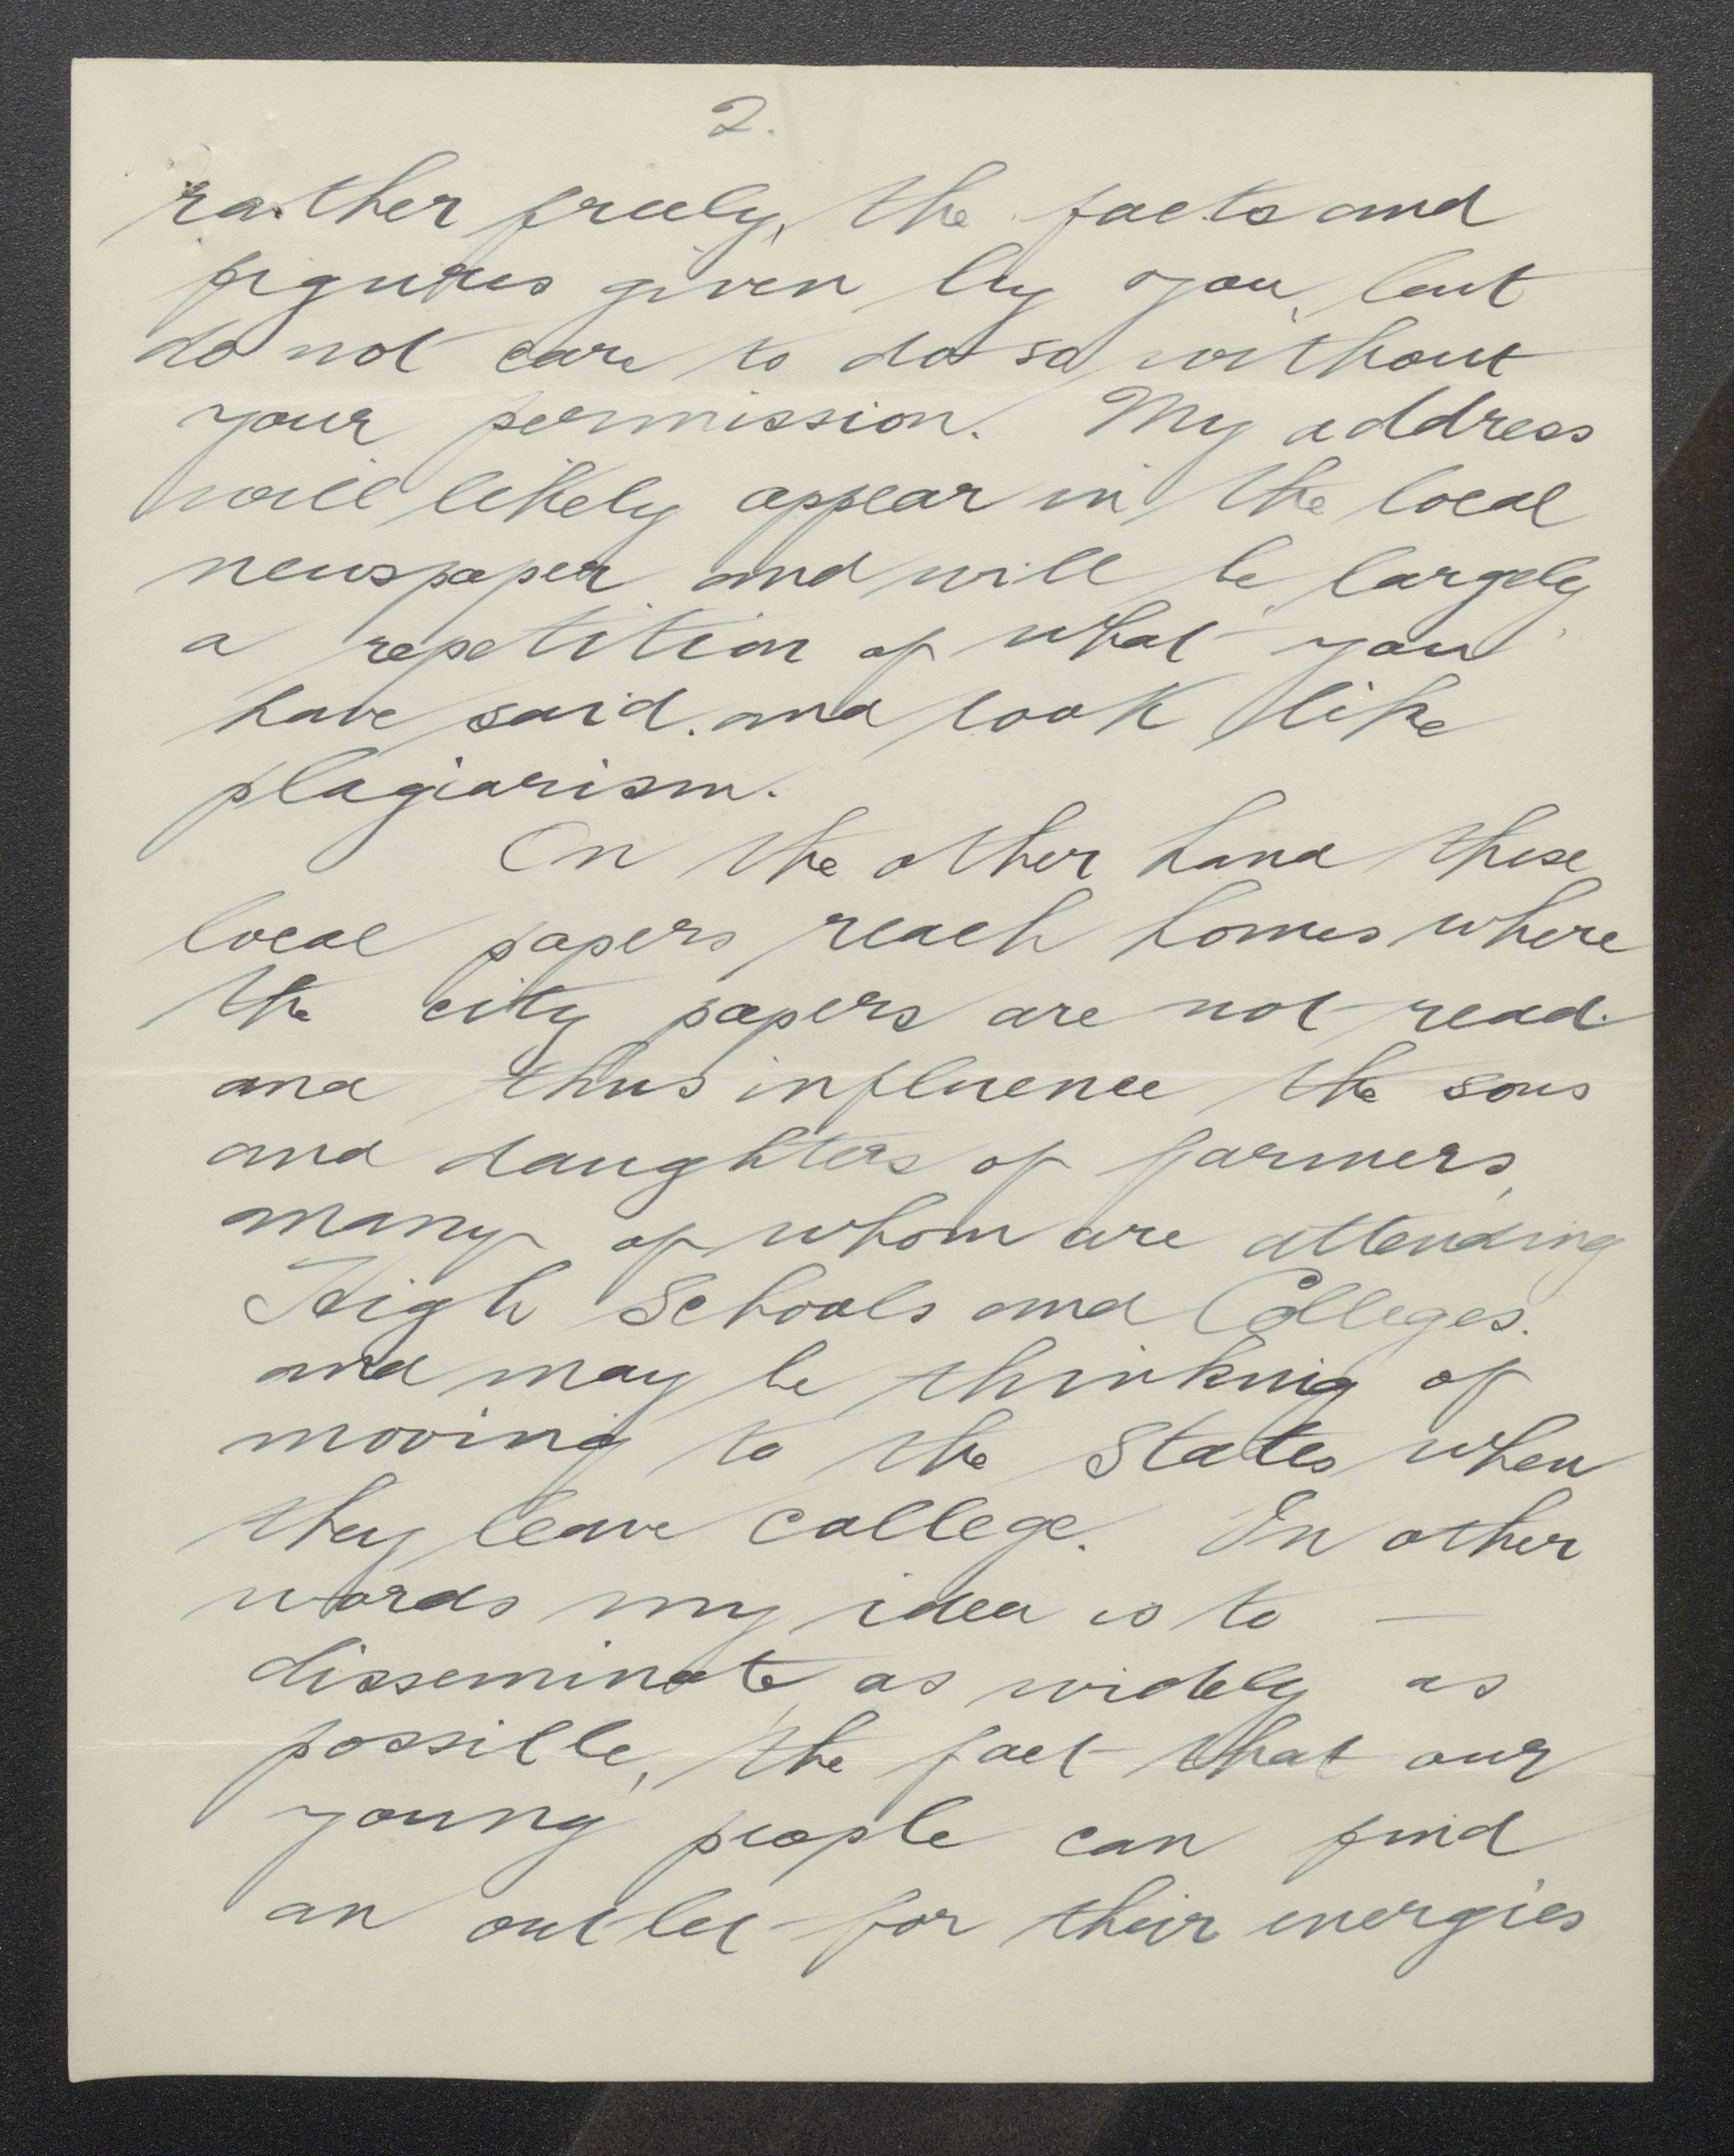 2.
rather freely, the facts and
figures given by you, but
do not care to do so without
your permission. My address
will likely appear in the local
newspaper and will be largely
a repetition of what you
have said. and look like
plagiarism.
On the other hand these
local papers reach homes where
the city papers are not read.
and thus influence the sons
and daughters of farmers,
many of whom are attending
High Schools and Colleges.
and may be thinking of
moving to the States when
they leave college. In other
words my idea is to —
disseminate, as widely as
possible, the fact that our
young people can find
an outlet for their energies